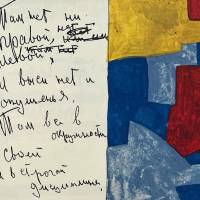 Там нет ни
правой,
левой,
И выси нет и
опущенья.
Там всё в
окружности
своей
и в строгой
дисциплине,